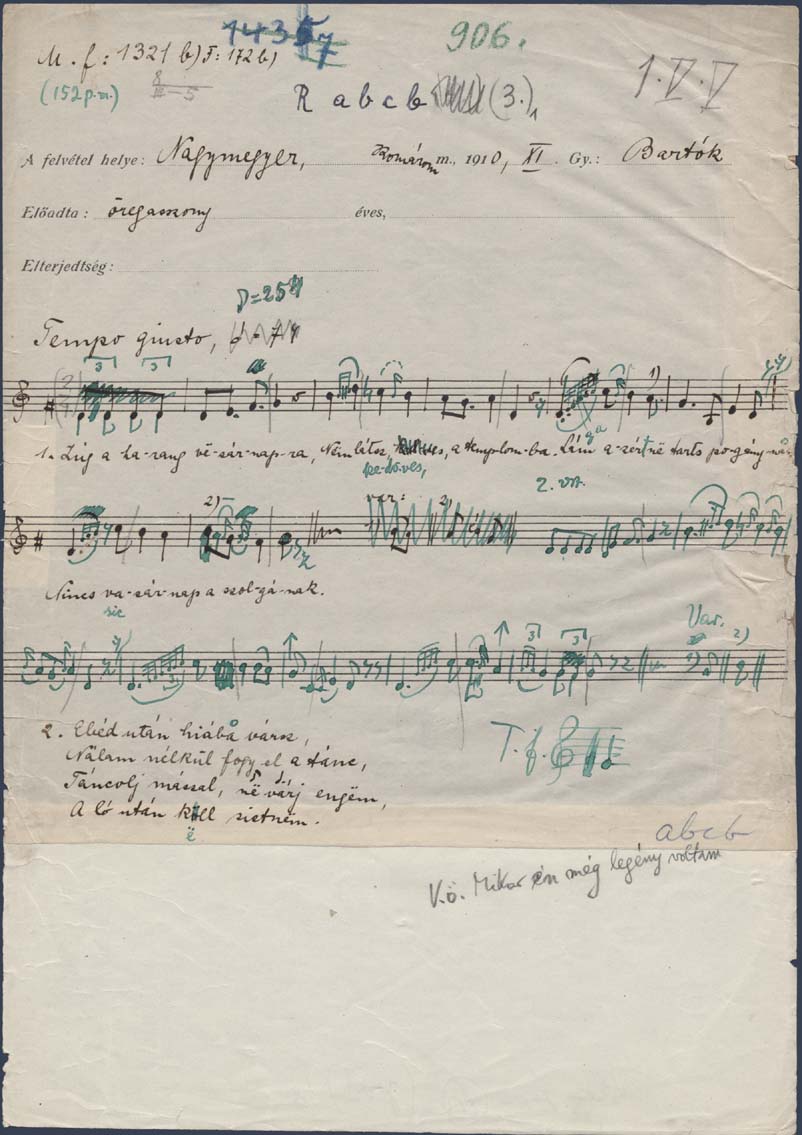 906.
M. f: 1321 b) F: 172 b)
(152 p.m.)
R abcb (3.)
1. V. V
A felvétel helye: Nagymegyer, Komárom m., 1910, XI. Gy.: Bartók
Előadta: öregasszony éves,
Elterjedtség:
Tempo giusto,
1. Zúg a ha-rang va-sár-nap-ra, Nem látsz, ke-dö-ves, a templom-ba. Lám a-zért në tarts po-gány-nak,
2. vrs.
var:
2)
Nincs va-sár-nap a szol-gá-nak.
sic
Var.
2)
2. Ebéd után hiába vársz,
Nálam nélkül fogy el a tánc,
Táncolj mással, në várj engëm,
A ló után këll sietnëm.
T. f.
abcb
V.ö. Mikor én még legény voltam